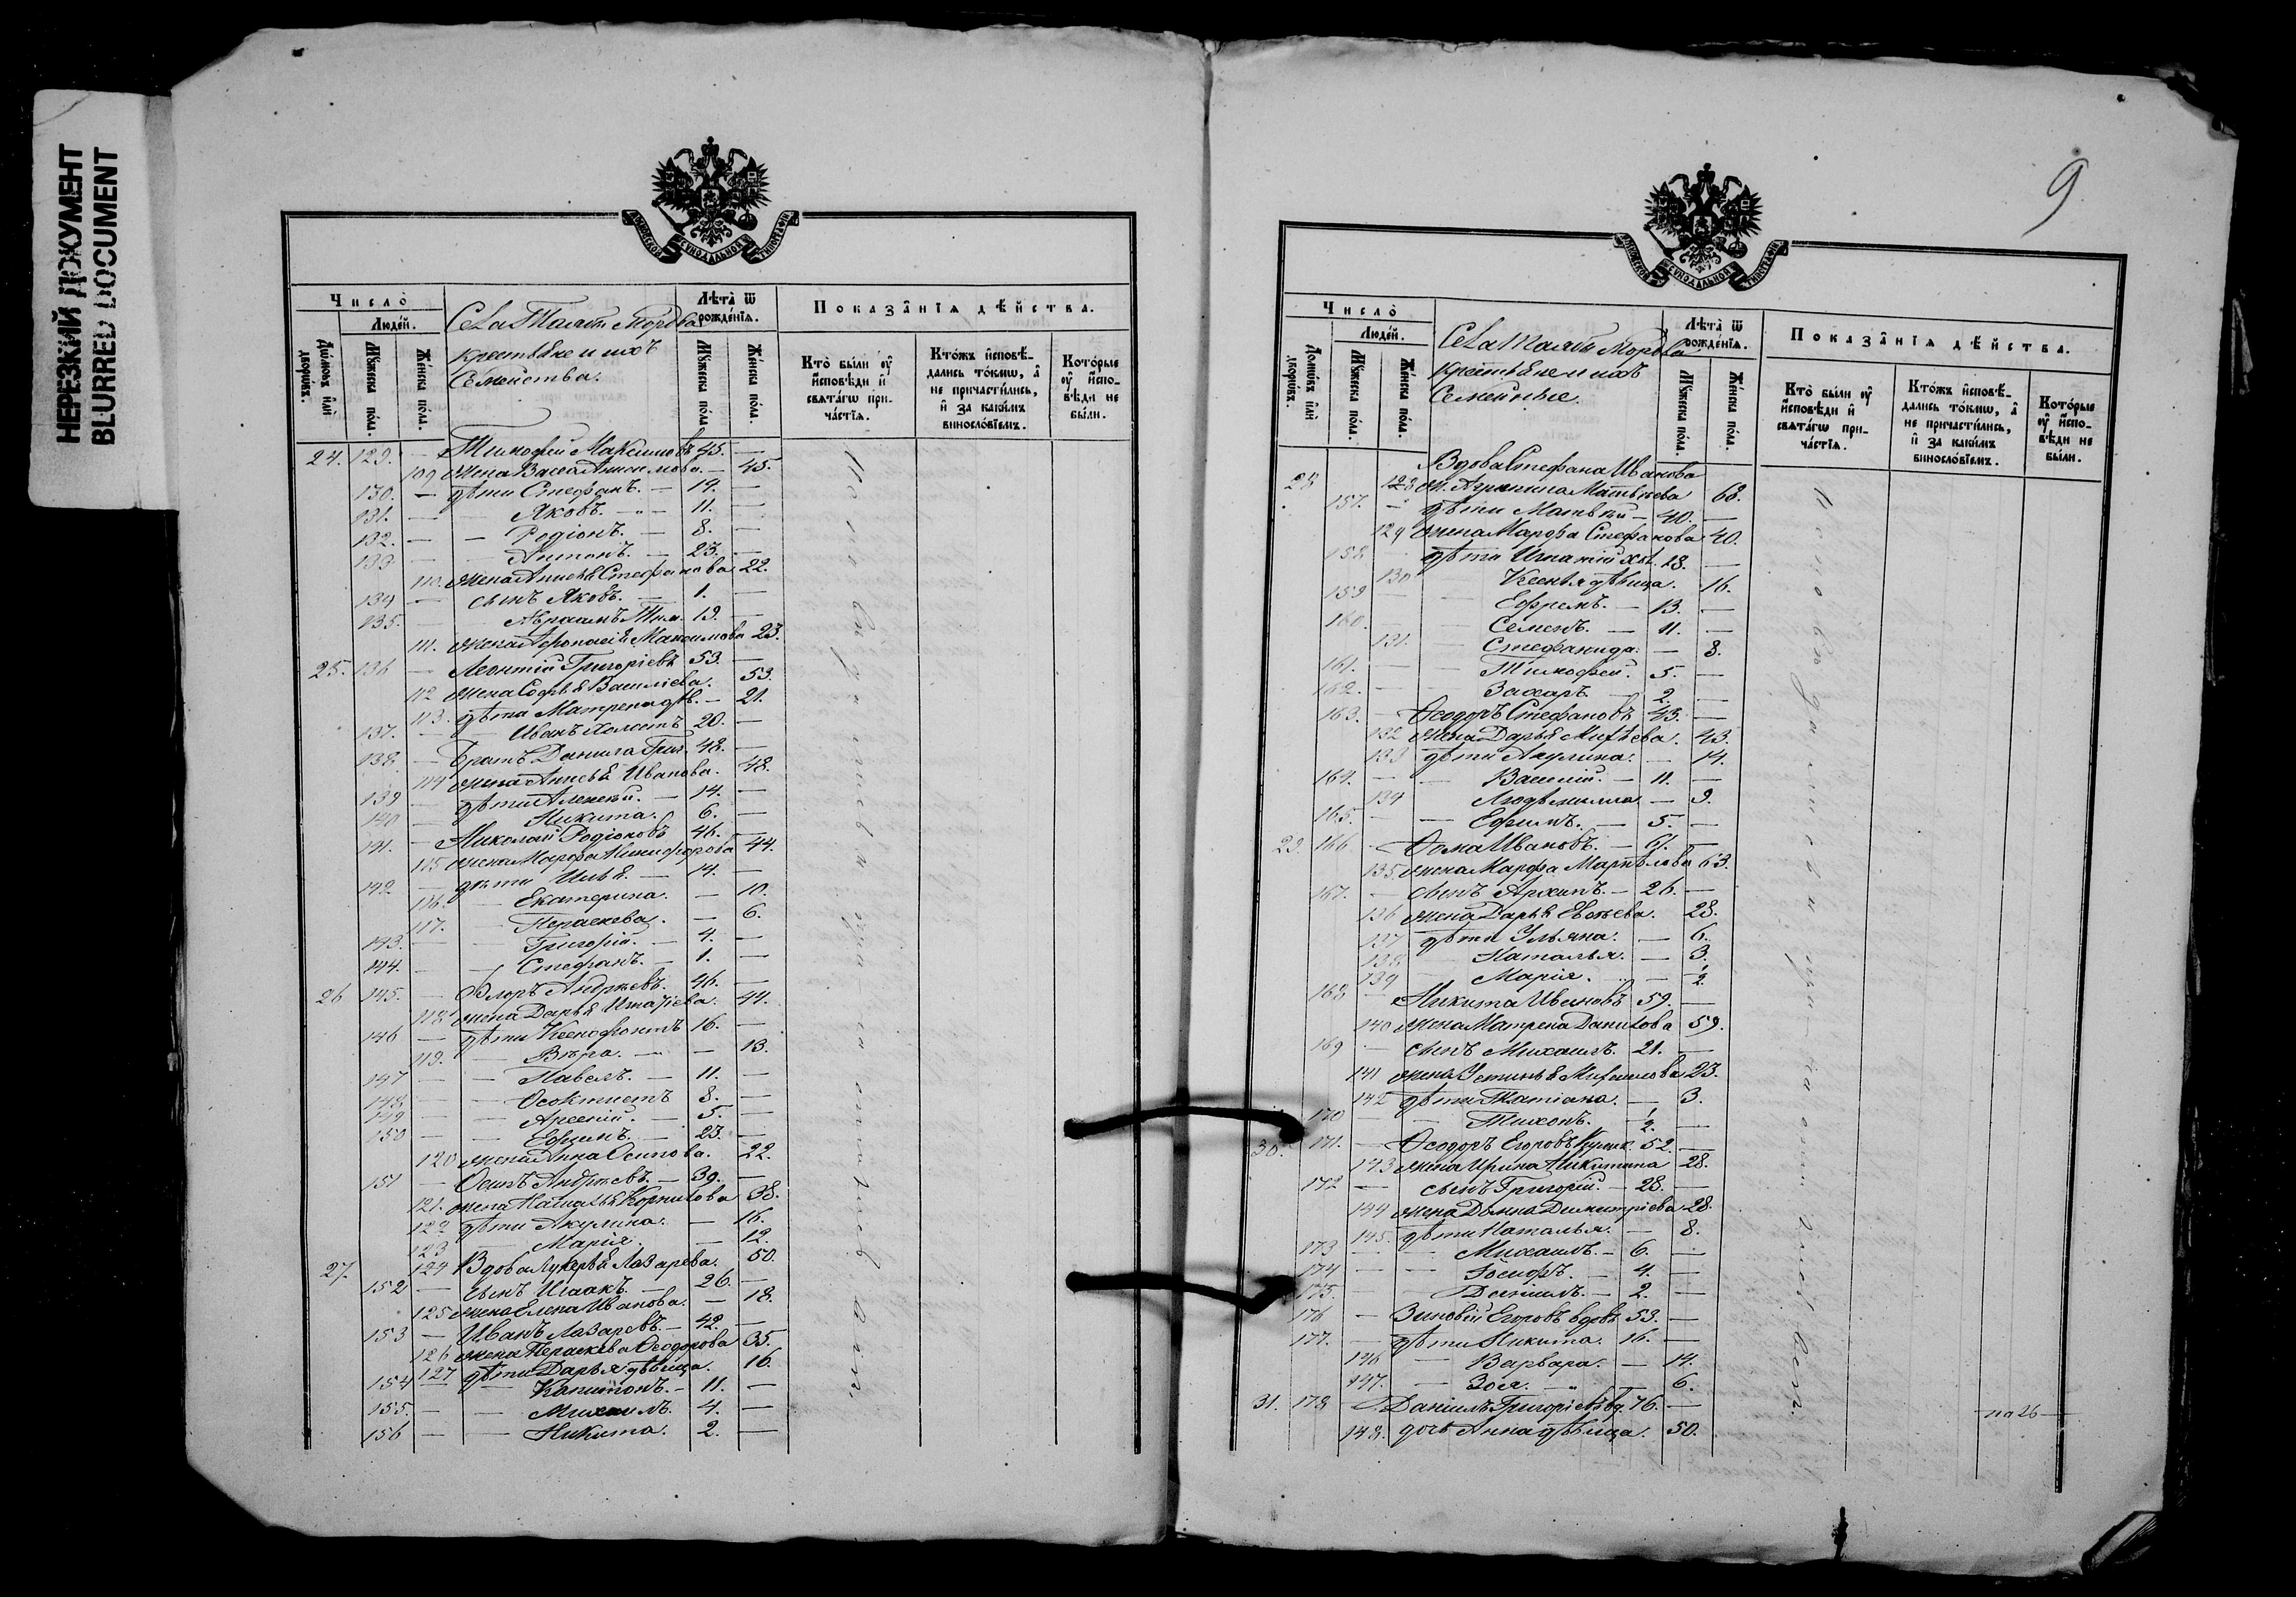 НЕРЕЗКИЙ ДОКУМЕНТ
BLURRED DOCUMENT
МОСКОВСКОЙ СУНОДАЛЬНОЙ ТИПОГРАФІИ
Число̀
Людей.
Домѡвъ или дворѡвъ.
Мꙋжеска пола.
Женска пола.
Села Талятъ Мордва
крестьяне и ихъ
Семейства.
Лѣта̀ ѿ рожденїѧ.
Мꙋжеска пола.
Женска пола.
Показанїѧ дѣйства.
Кто̀ были оу҆ исповѣди и свѧтагѡ причастїѧ.
Ктожъ исповѣдались токмѡ, а не причастились, и за какимъ винословїемъ.
Которые оу҆ исповѣди не были.
24. 129. — Тимофей Максимовъ 45. —
109 жена Васса Анисимова. — 45.
130. — дѣти Стефанъ. — 19. —
131. — — Яковъ. — 11. —
132. — — Родіонъ. — 8. —
133 — Антонъ. — 23. —
110. жена Анисья Стефанова 22.
134 — сынъ Яковъ. — 1. —
135. Авраамъ Тим. 19. —
111. жена Афонасія Максимова 23.
25. 136 — Леонтій Григоріевъ 53. —
112 жена Софья Василіева. 53.
113. дѣти Матрена дѣв. — 21.
137. — — Иванъ холостъ 20. —
138. — братъ Данила Григ. 48. —
114 жена Анисья Иванова. 48.
139 — дѣти Алексѣй. — 14. —
140 — Никита. 6. —
141. — Николай Родіоновъ 46. —
115 жена Марфа Никифорова 44.
142 — дѣти Илья. — 14. —
116. — Екатерина. — 10.
117. — Параскева. — 6.
143. — — Григорій. — 4. —
144. — — Стефанъ. — 1. —
26 145. — Флоръ Андреевъ. 46. —
118 жена Дарья Игнатіева. 44.
146 — дѣти Ксенофонтъ 16. —
119. — Вѣра. — — 13.
147 — — Павелъ. — 11. —
148 — — Ѳеоктистъ 8. —
149 — — Арсеній. — 5. —
150 — — Ефимъ. — 23. —
120 жена Анна Осипова. 22.
151 — Осипъ Андреевъ. — 39. —
121. жена Наталья Корнилова 38.
122 дѣти Акулина. — 16.
123 — Марія. — 12.
27. 124 Вдова Лукерья Лазарева. 50.
152 — сынъ Исаакъ. — 26. —
125 жена Елена Иванова. — 18.
153 — Иванъ Лазаревъ. — 42. —
126 жена Параскева Ѳеодорова 35.
127 дѣти Дарья дѣвица. 16.
154 — — Капитонъ. — 11. —
155. — — Михаилъ. 4. —
156 — — Никита. 2. —
9
МОСКОВСКОЙ СУНОДАЛЬНОЙ ТИПОГРАФІИ
Число̀
Людей.
Домѡвъ или дворѡвъ.
Мꙋжеска пола.
Женска пола.
Села Талятъ Мордва
крестьяне и ихъ
Семейные.
Лѣта̀ ѿ рожденїѧ.
Мꙋжеска пола.
Женска пола.
Показанїѧ дѣйства.
Кто̀ были оу҆ исповѣди и свѧтагѡ причастїѧ.
Ктожъ исповѣдались токмѡ, а не причастились, и за какимъ винословїемъ.
Которые оу҆ исповѣди не были.
Вдова Стефана Иванова
28 128 ж. Агрипина Матвѣева 68.
157. — дѣти Матвѣй — 40. —
129 жена Марфа Стефанова 40.
158 дѣти Игнатій хол. 18. —
130 Ксенья дѣвица. 16.
159 — Ефремъ. — 13. —
160. Семенъ. — 11. —
131. — Стефанида. — 8.
161. — — Тимофей. 5. —
162. — Захаръ. — 2. —
163. — Ѳеодоръ Стефановъ 43. —
132 жена Дарья Михѣева. 43.
133 дѣти Акулина. — 14.
164. — — Василій. — 11. —
134 Людмилла — 9.
165. — — Ефимъ. — 5. —
29. 166 — Ѳома Ивановъ. — 61. —
135 жена Марфа 63.
167. — сынъ Архипъ. — 26. —
136 жена Дарья 28.
137 дѣти Ульяна. — 6.
138 Наталья. — 3.
139 Марія. — ½.
168 — Никита Ивановъ 59. —
140 жена Матрена Данилова 59.
169 — сынъ Михаилъ. 21. —
141 жена Устинья Михайлова 23.
142 дѣти Татіана. — 3.
170 Тихонъ. — ½. —
30. 171. — Ѳеодоръ Егоровъ 52. —
143 жена Ирина Никитина 28.
172 — сынъ Григорій. — 28. —
144 жена Домна Димитріева 28.
145. дѣти Наталья. — 8.
173 — — Михаилъ. — 6. —
174 — — Іосифъ. — 4. —
175. — Даніилъ. — 2. —
176 — Зиновій Егоровъ вдовъ 53. —
177. — дѣти Никита. 16. —
146 — Варвара. — 14.
147. — Зоя. — 6.
31. 178 — Даніилъ Григоріевъ вд. 76. —
148. дочь Анна дѣвица. 50.